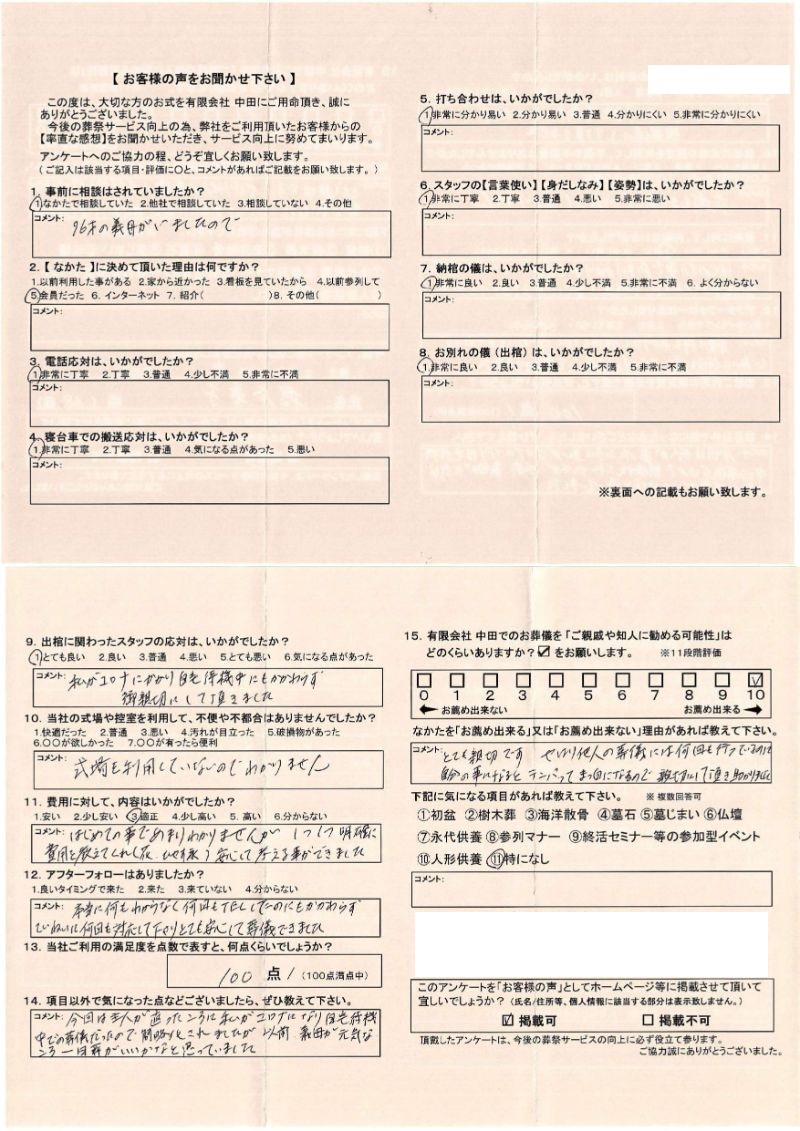 【 お客様の声をお聞かせ下さい 】
この度は、大切な方のお式を有限会社 中田にご用命頂き、誠に
ありがとうございました。
今後の葬祭サービス向上の為、弊社をご利用頂いたお客様からの
【率直な感想】をお聞かせいただき、サービス向上に努めてまいります。
アンケートへのご協力の程、どうぞ宜しくお願い致します。
( ご記入は該当する項目・評価に○と、コメントがあればご記載をお願い致します。 )
1. 事前に相談はされていましたか?
1.なかたで相談していた 2.他社で相談していた 3.相談していない 4.その他
コメント:
96才の義母がいましたので
2.【 なかた 】に決めて頂いた理由は何ですか?
1.以前利用した事がある 2.家から近かった 3.看板を見ていたから 4.以前参列して
5.会員だった 6. インターネット 7. 紹介( )8. その他( )
コメント:
3. 電話応対は、いかがでしたか?
1.非常に丁寧 2.丁寧 3.普通 4.少し不満 5.非常に不満
コメント:
4. 寝台車での搬送応対は、いかがでしたか?
1.非常に丁寧 2.丁寧 3.普通 4.気になる点があった 5.悪い
コメント:
5. 打ち合わせは、いかがでしたか?
1.非常に分かり易い 2.分かり易い 3.普通 4.分かりにくい 5.非常に分かりにくい
コメント:
6. スタッフの【言葉使い】【身だしなみ】【姿勢】は、いかがでしたか?
1.非常に丁寧 2.丁寧 3.普通 4.悪い 5.非常に悪い
コメント:
7. 納棺の儀は、いかがでしたか?
1.非常に良い 2.良い 3.普通 4.少し不満 5.非常に不満 6. よく分からない
コメント:
8. お別れの儀 (出棺) は、いかがでしたか?
1.非常に良い 2.良い 3.普通 4.少し不満 5.非常に不満
コメント:
※裏面への記載もお願い致します。
9. 出棺に関わったスタッフの応対は、いかがでしたか?
1.とても良い 2.良い 3.普通 4.悪い 5.とても悪い 6.気になる点があった
コメント: 私がコロナにかかり自宅待機中にもかかわらず
御親切にして頂きました
10. 当社の式場や控室を利用して、不便や不都合はありませんでしたか?
1.快適だった 2.普通 3.悪い 4.汚れが目立った 5.破損物があった
6.○○が欲しかった 7.○○が有ったら便利
コメント:
式場を利用していないのでわかりません
11. 費用に対して、内容はいかがでしたか?
1.安い 2.少し安い 3.適正 4.少し高い 5. 高い 6.分からない
コメント: はじめての事であまりわかりませんが 1つ1つ明確に
費用を教えてくれした 安心して考える事ができました
12. アフターフォローはありましたか?
1.良いタイミングで来た 2.来た 3.来ていない 4.分からない
コメント: 本当に何もわからなく何回もTELしたのにもかかわらず
ていねいに何回も対応して下さりとても安心して葬儀できました
13. 当社ご利用の満足度を点数で表すと、何点くらいでしょうか?
100 点! (100点満点中)
14. 項目以外で気になった点などございましたら、ぜひ教えて下さい。
コメント: 今回は主人が逝ったころに私がコロナになり自宅待機
中での葬儀だったので簡略化されましたが 以前 義母が元気な
ころ 一日葬がいいかなと思っていました
15. 有限会社 中田でのお葬儀を「ご親戚や知人に勧める可能性」は
どのくらいありますか? ☑ をお願いします。 ※11段階評価
0 1 2 3 4 5 6 7 8 9 10
お薦め出来ない お薦め出来る
なかたを「お薦め出来る」又は「お薦め出来ない」理由があれば教えて下さい。
コメント: とても親切です やはり他人の葬儀には何回も行っているのに
の事になるとテンパってまっ白になるので 親切にして頂き助かりました
下記に気になる項目があれば教えて下さい。 ※ 複数回答可
①初盆 ②樹木葬 ③海洋散骨 ④墓石 ⑤墓じまい ⑥仏壇
⑦永代供養 ⑧参列マナー ⑨終活セミナー等の参加型イベント
⑩人形供養 ⑪特になし
コメント:
このアンケートを「お客様の声」としてホームページ等に掲載させて頂いて
宜しいでしょうか? (氏名/住所等、個人情報に該当する部分は表示致しません。)
☑ 掲載可 □ 掲載不可
頂戴したアンケートは、今後の葬祭サービスの向上に必ず役立て参ります。
ご協力誠にありがとうございました。